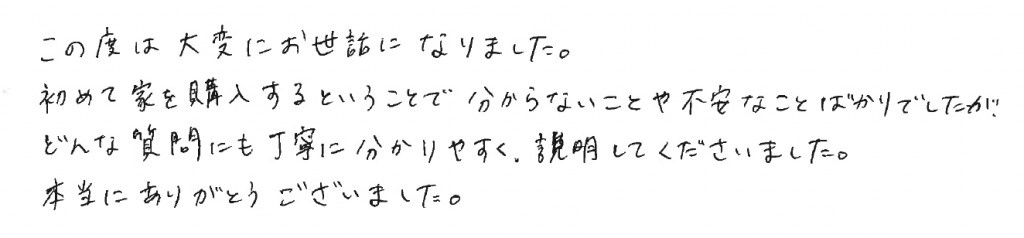 この度は大変にお世話になりました。
初めて家を購入するということで分からないことや不安なことばかりでしたが、
どんな質問にも丁寧に分かりやすく、説明してくださいました。
本当にありがとうございました。